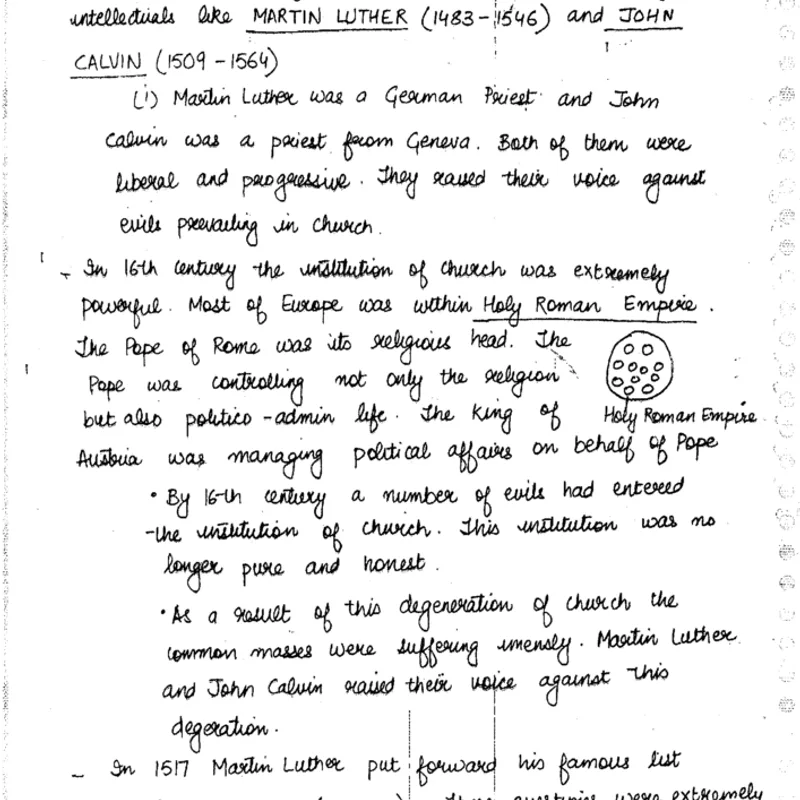 intellectuals like MARTIN LUTHER (1483-1546) and JOHN
CALVIN (1509-1564)
(i) Martin Luther was a German Priest and John
Calvin was a priest from Geneva. Both of them were
liberal and progressive. They raised their voice against
evils prevailing in church.
- In 16th century the institution of church was extremely
powerful. Most of Europe was within Holy Roman Empire.
The Pope of Rome was its religious head. The
Pope was controlling not only the religion
but also politico-admin life. The King of
Holy Roman Empire
Austria was managing political affairs on behalf of Pope
• By 16th century a number of evils had entered
the institution of church. This institution was no
longer pure and honest.
• As a result of this degeneration of church the
common masses were suffering imensly. Martin Luther
and John Calvin raised their voice against this
degeration.
- In 1517 Martin Luther put forward his famous list
were extremely